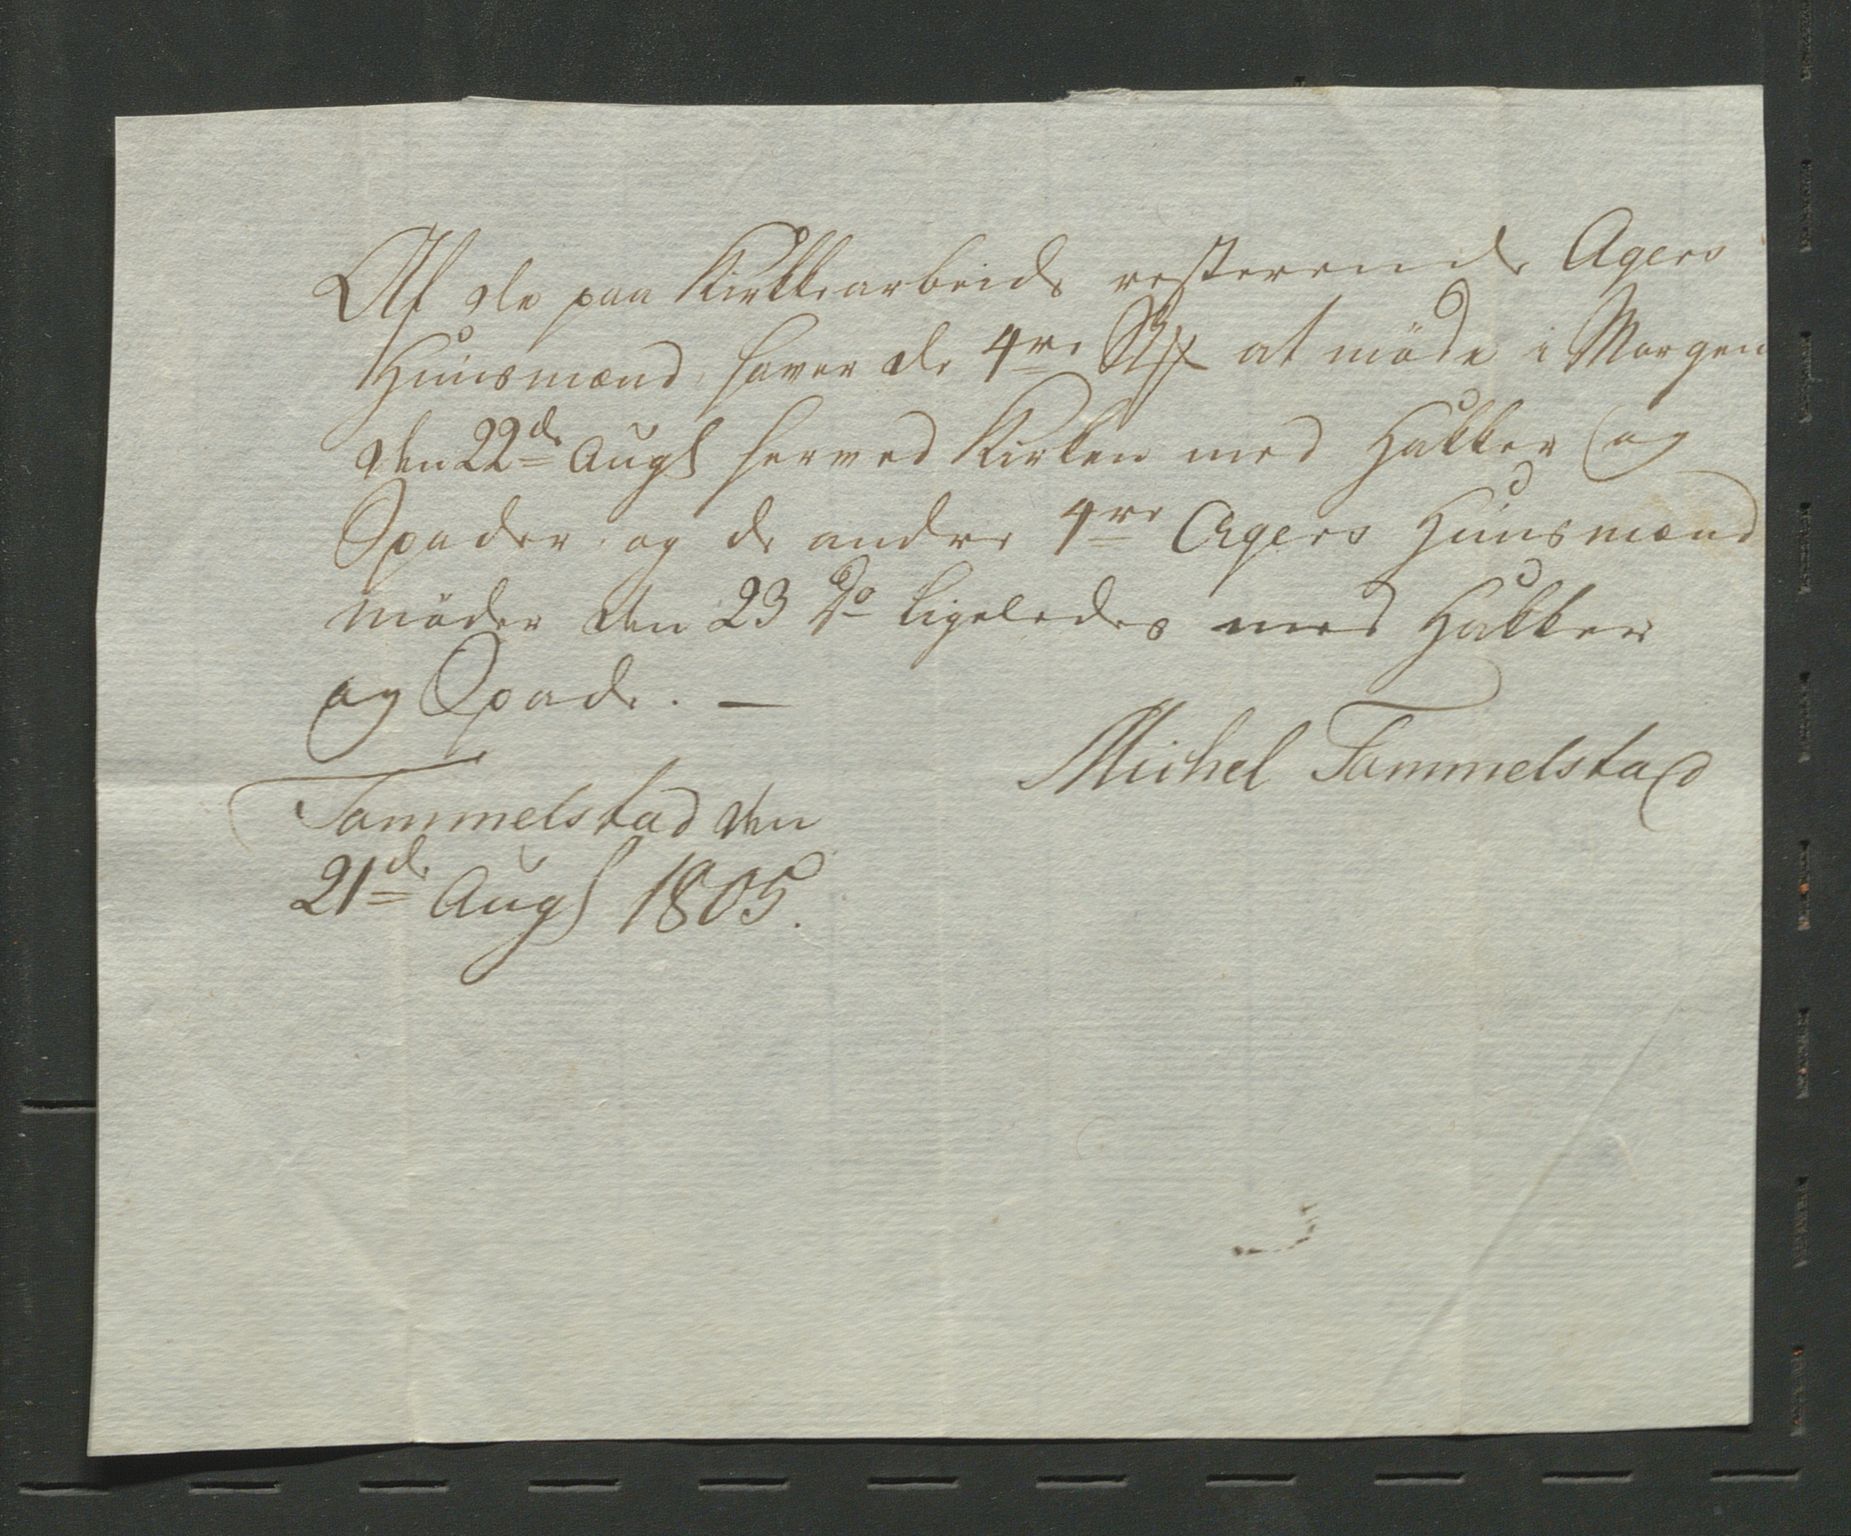 Af de paa Kirkearbeide resterende Agers
Huusmænd, haver de 4re Stk at möde i Morgen
den 22de Augs herved Kirken med Hakker og
Spader, og de andre 4re Agers Huusmænd
möder den 23 do ligeledes med Hakker
og Spade. —
Michel Tommelstad
Tommelstad den
21de Augs 1805.